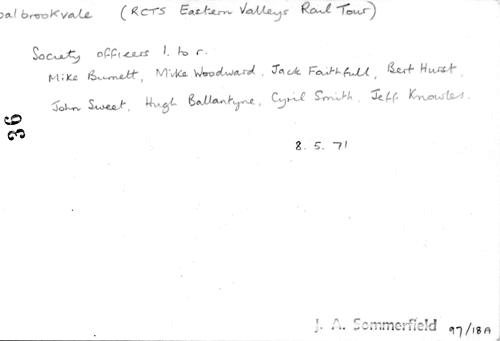 oalbrookvale (RCTS Eastern Valleys Rail Tour)
Society officers l. to r.
Mike Burnett, Mike Woodward, Jack Faithfull, Bert Hurst,
John Sweet, Hugh Ballantyne, Cyril Smith, Jeff Knowles.
36
8. 5. 71
J. A. Sommerfield 97/18A